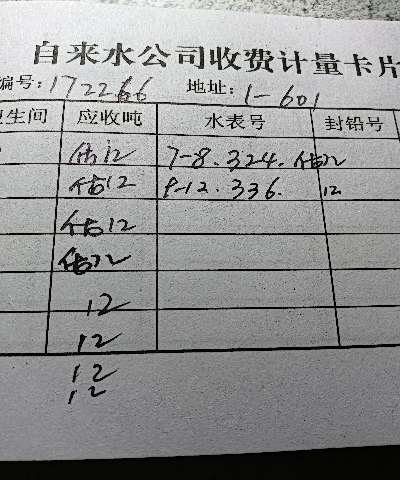 自来水公司收费计量卡片
编号:172266 地址:1-601
卫生间 应收吨 水表号 封铅号
估12 7-8.324.估12
估12 9-12.336. 12.
估12
估12
12
12
12
12